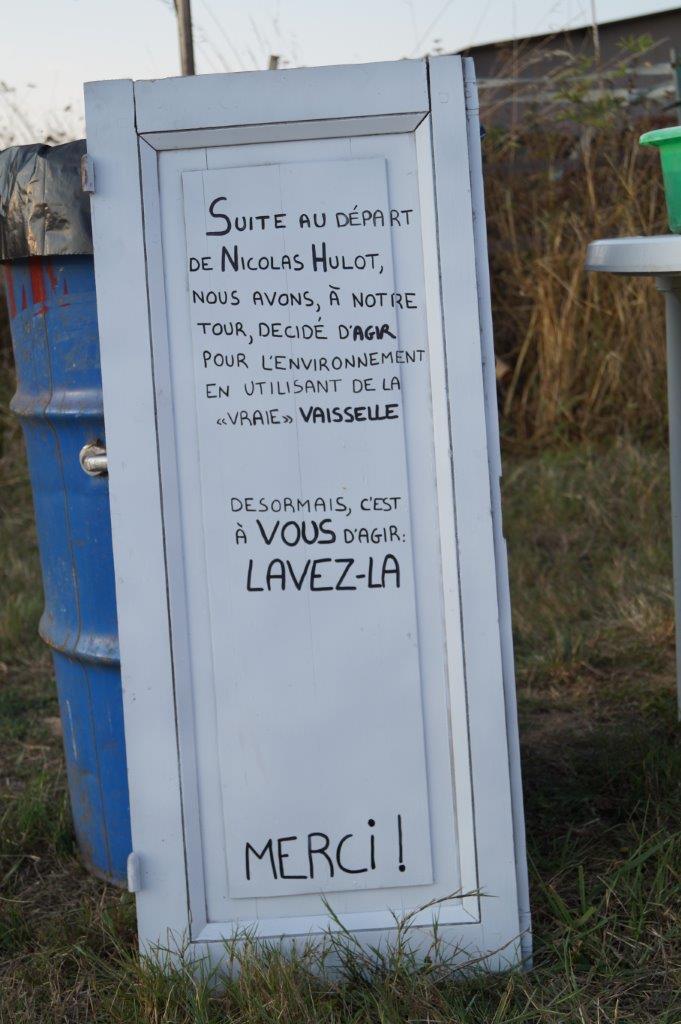 SUITE AU DÉPART
DE NICOLAS HULOT,
NOUS AVONS, À NOTRE
TOUR, DECIDÉ D'AGIR
POUR L'ENVIRONNEMENT
EN UTILISANT DE LA
«VRAIE» VAISSELLE
DESORMAIS, C'EST
À VOUS D'AGIR:
LAVEZ-LA
MERCi !